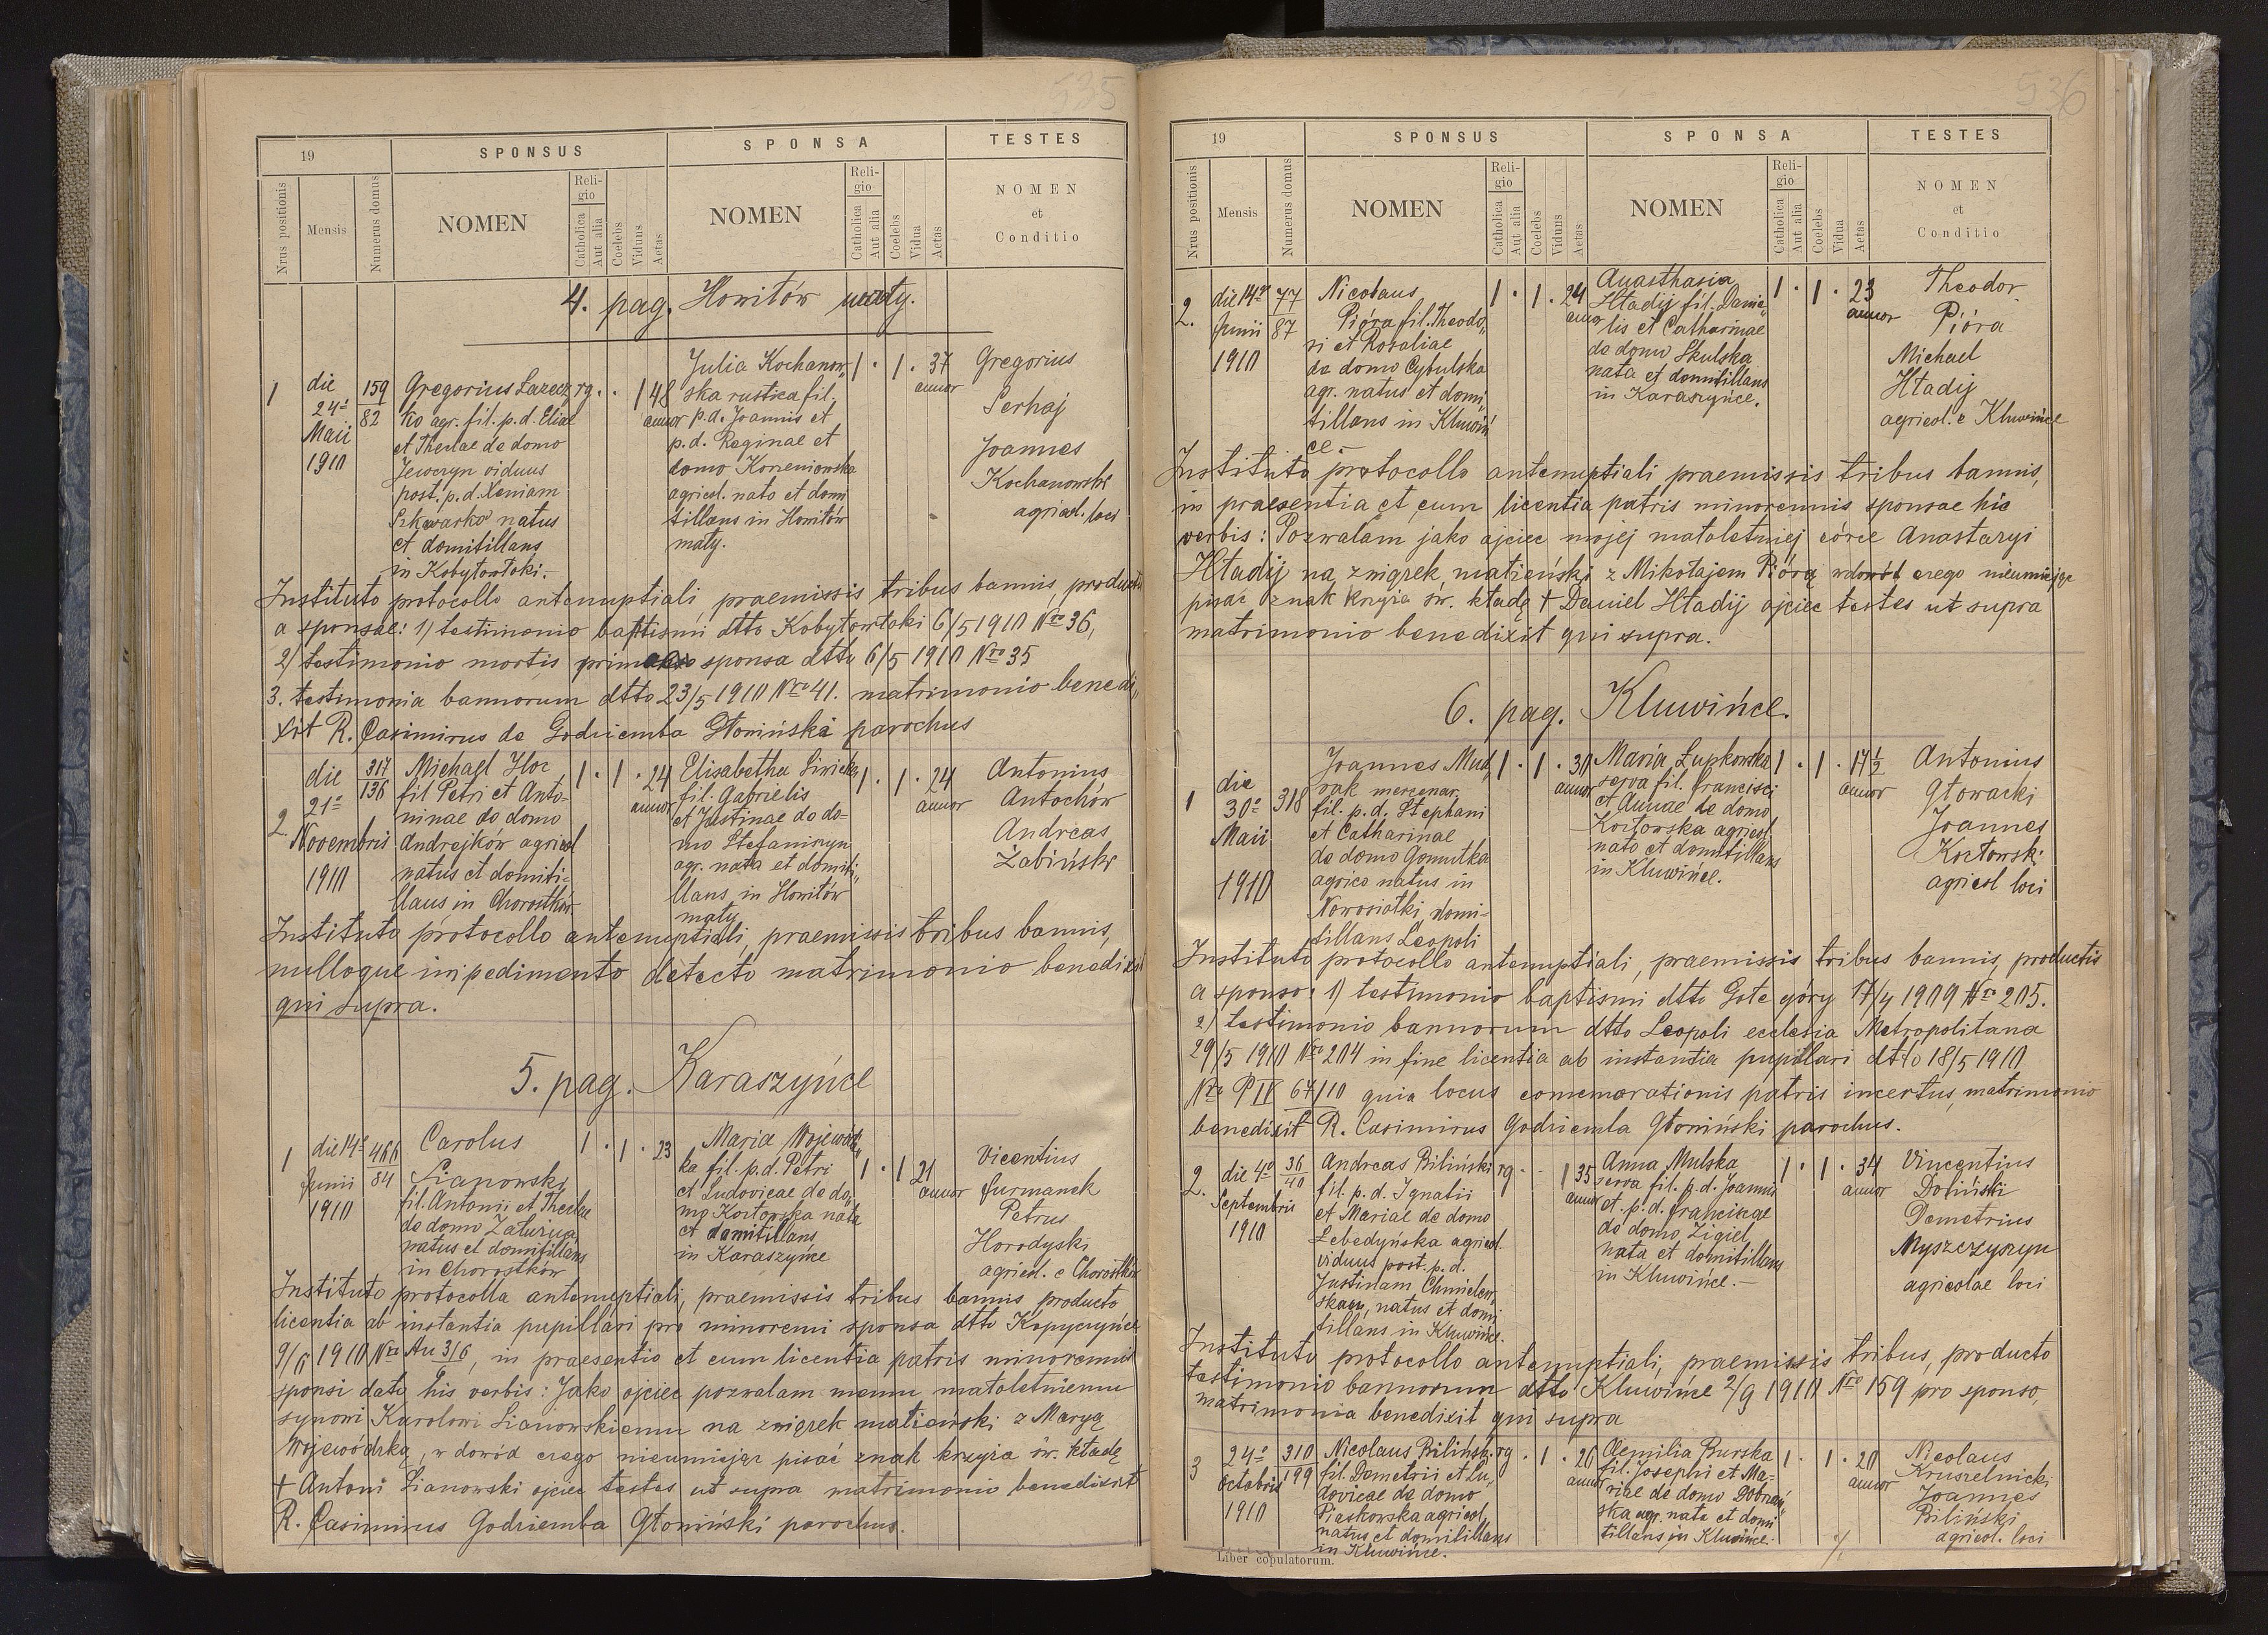 535
19
SPONSUS
SPONSA
TESTES
Nrus positionis
Mensis
Numerus domus
NOMEN
Religio
Catholica
Aut alia
Coelebs
Viduus
Aetas
NOMEN
Religio
Catholica
Aut alia
Coelebs
Vidua
Aetas
NOMEN
et
Conditio
4. pag. Howitów mały.
1
die
24ᵃ
Maii
1910
159
82
Gregorius Lazecz
ko agr. fil. p. d. Eliae
et Theclae de domo
viduus
post. p. d. Xeniam
Szkwarko natus
et domitillans
in Kobyłowłoki.–
rg. . 1 48
annor
Julia Kochanow„
ska rustica fil.
p. d. Joannis et
p. d. Reginae et
domo Korzeniowska
agricol. nata et domi
tillans in Howitów
mały.
1 . 1 . 37
annor
Gregorius
Serhaj
Joannes
Kochanowski
agricol. loci
Instituto protocollo antenuptiali, praemissis tribus bannis, producto
a sponsae: 1) testimonio baptismi dtto Kobyłowłoki 6/5 1910 Nro 36,
2) testimonio mortis sponsa dtto 6/5 1910 Nro 35
3. testimonia bannorum dtto 23/5 1910 Nro 41. matrimonio benedi„
xit R. Casimirus de Godziemba Głoniński parochus
2.
die
21ᵃ
Novembris
1910
317
136
Michael Hoc
fil Petri et Anto-
ninae de domo
Andrejków agricol
natus et domiti-
llans in Chorostków
1 . 1 . 24
annor
Elisabetha Siwicka
fil. Gabrielis
et Justinae de do-
mo Stefaniszyn
agr. nata et domiti„
llans in Howitów
mały
1 . 1 . 24
annor
Antonius
Antochów
Andreas
Żabiński
Instituto protocollo antenuptiali, praemissis tribus bannis,
nulloque impedimento detecto matrimonio benedixit
qui supra.
5. pag. Karaszyńce
1
die 14ᵃ
Junii
1910
466
84
Carolus
Lianowski
fil. Antonii et Theclae
de domo Załużna
natus et domitillans
in Chorostków
1 . 1 . 23
Maria Wojewódz„
ka fil. p. d. Petri
et Ludovicae de do„
mo Kozłowska nata
et domitillans
in Karaszyńce
1 . 1 21
annor
Vicentius
Furmanek
Petrus
Horodyski
agricol. e Chorostków
Instituto protocollo antenuptiali, praemissis tribus bannis producto
licentia ab instantia pupillari pro minoreni sponsa dtto Kopyczyńce
9/6 1910 Nro 316, in praesentia et cum licentia patris minorennis
sponsi dato his verbis: Jako ojciec pozwalam memu małoletniemu
synowi Karolowi Lianowskiemu na związek małżeński z Maryą
Wojewódzką, w dowód czego nieumiejąc pisać znak krzyża św. kładę
† Antoni Lianowski ojciec testes ut supra matrimonio benedixit
R. Casimirus Godziemba Głoniński parochus.
536
19
SPONSUS
SPONSA
TESTES
Nrus positionis
Mensis
Numerus domus
NOMEN
Religio
Catholica
Aut alia
Coelebs
Viduus
Aetas
NOMEN
Religio
Catholica
Aut alia
Coelebs
Vidua
Aetas
NOMEN
et
Conditio
2.
die 14ᵃ
Junii
1910
77
87
Nicolaus
Pióra fil. Theodo„
ri et Rosaliae
de domo Cybulska
agr. natus et domi„
tillans in Kluwiń
ce –
1 . 1 . 24
annor
Anasthasia
Hładij fil. Danie„
lis et Catharinae
de domo Skulska
nata et domitillans
in Karaszyńce.
1 . 1 . 23
annor
Theodor
Pióra
Michael
Hładij
agricol. e Kluwińce
Instituto protocollo antenuptiali, praemissis tribus bannis,
in praesentia et cum licentia patris minorennis sponsae his
verbis: Pozwalam jako ojciec mojej małoletniej córce Anastazyi
Hładij na związek małżeński z Mikołajem Piórą w dowód czego nieumiejąc
pisać znak krzyża św. kładę † Daniel Hładij ojciec testes ut supra
matrimonio benedixit qui supra.
6. pag. Kluwińce.
1
die
30ᵃ
Maii
1910
318
Joannes Mud„
rak mercenar.
fil. p. d. Stephani
et Catharinae
de domo Gomułka
agrico natus in
Nowosiołki, domi-
tillans Leopoli
1 . 1 . 30
annor
Maria Łupkowska
serva fil. Francisci
et Annae de domo
Kozłowska agricol.
nata et domitillans
in Kluwińce.
1 . 1 . 17 ½
annor
Antonius
Głowacki
Joannes
Kozłowski
agricol loci
Instituto protocollo antenuptiali, praemissis tribus bannis, productis
a sponso: 1) testimonio baptismi dtto Gołe góry 17/4 1909 Nro 205.
2) testimonio bannorum dtto Leopoli ecclesia Metropolitana
29/5 1910 Nro 204 in fine licentia ab instantia pupillari dtto 18/5 1910
Nro P IV 67/10 quia locus comemorationis patris incertus, matrimonio
benedixit R. Casimirus Godziemba Głoniński parochus.
2.
die 4ᵃ
Septembris
1910
36
40
Andreas Biliński
fil. p. d. Ignatii
et Mariae de domo
Lebedyńska agricol.
viduus post. p. d.
Justinam Chmielew„
skam, natus et domi
tillans in Kluwińce.
rg . . 1 35
annor
Anna Mulska
serva fil. p. d. Joannis
et. p. d. Franciscae
de domo Zigiel
nata et domitillans
in Kluwińce. –
1 . 1 . 34
annor
Vincentius
Doliński
Demetrius
Myszczyszyn
agricolae loci
Instituto protocollo antenuptiali, praemissis tribus, producto
testimonio bannorum dtto Kluwińce 2/9 1910 Nro 159 pro sponso,
matrimonia benedixit qui supra
3
24ᵃ
Octobris
1910
310
199
Nicolaus Biliński
fil. Demetrii et Lu„
dovicae de domo
Piaskowska agricol.
natus et domitillans
in Kluwińce.
rg . 1 . 26
annor
Aemilia Burska
fil. Josephi et Ma-
riae de domo Dobrzań„
ska agr. nata et domi
tillans in Kluwińce.
1 . 1 . 20
annor
Nicolaus
Kruszelnicki
Joannes
Biliński
agricol. loci
Liber copulatorum.